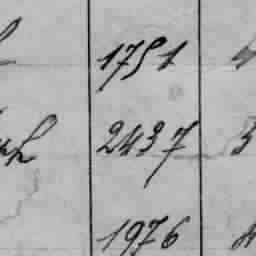 1751
2437 3
1976